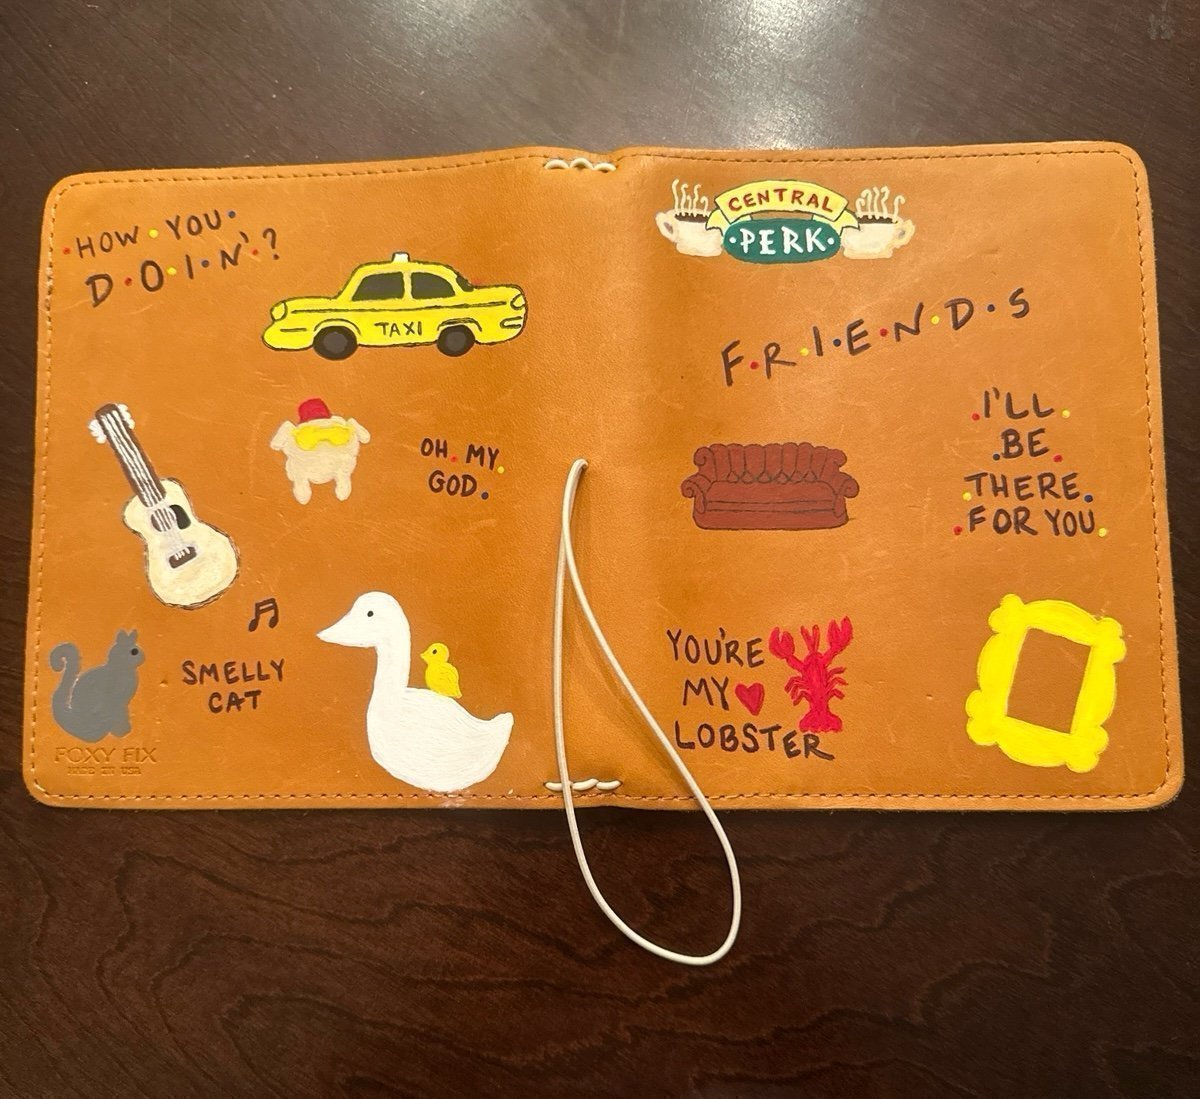 ·HOW·YOU·
D·O·I·N'·?
TAXI
OH. MY.
GOD.
SMELLY
CAT
FOXY FIX
MADE IN USA
CENTRAL
·PERK·
F·R·I·E·N·D·S
.I'LL.
.BE.
.THERE.
.FOR YOU.
YOU'RE
MY
LOBSTER